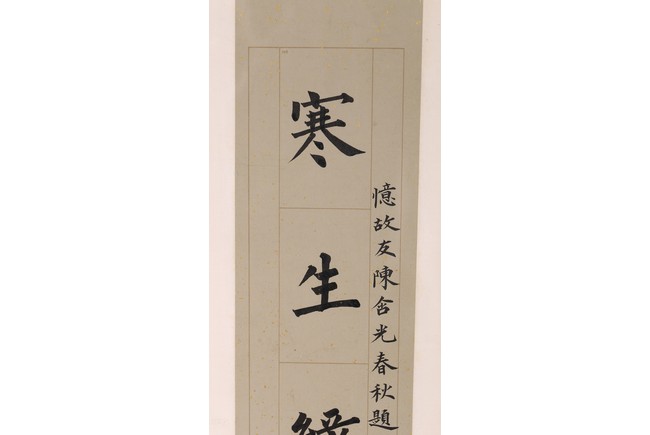 憶故友陳含光春秋題
寒生